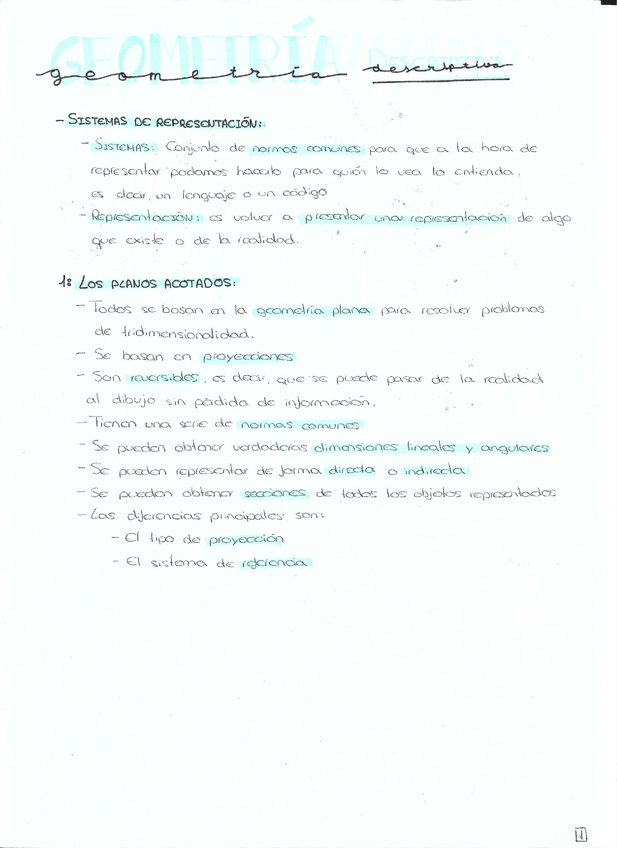 GEOMETRÍA DESCRIPTIVA
geometría descriptiva
- SISTEMAS DE REPRESENTACIÓN:
- SISTEMAS: Conjunto de normas comunes para que a la hora de
representar podamos hacerlo para quién lo vea lo entienda,
es decir, un lenguaje o un código
- REPRESENTACIÓN: es volver a presentar una representación de algo
que existe o de la realidad.
1: LOS PLANOS ACOTADOS:
- Todos se basan en la geometría plana para resolver problemas
de tridimensionalidad.
- Se basan en proyecciones
- Son reversibles, es decir, que se puede pasar de la realidad
al dibujo sin pérdida de información.
- Tienen una serie de normas comunes
- Se pueden obtener verdaderas dimensiones lineales y angulares
- Se pueden representar de forma directa o indirecta
- Se pueden obtener secciones de todos los objetos representados
- Las diferencias principales son:
- El tipo de proyección
- El sistema de referencia
1